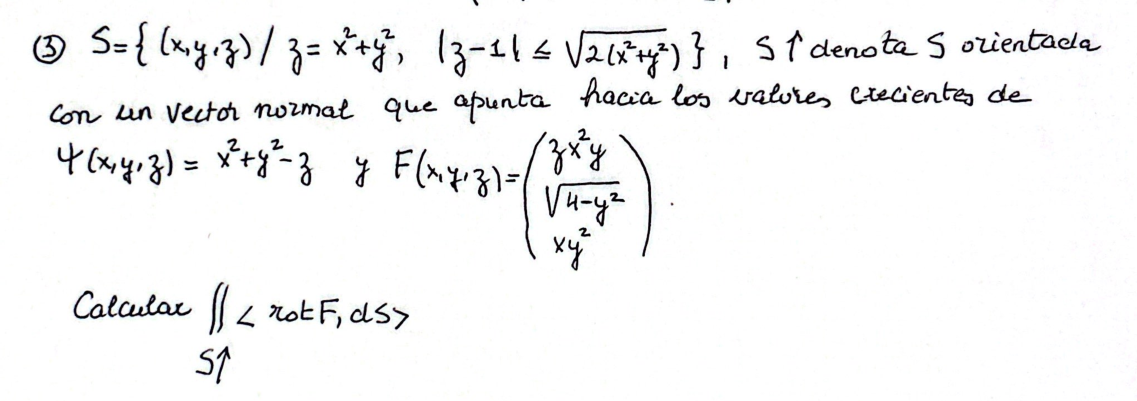 ③ S={ (x,y,z) / z= x²+y², |z-1| ≤ √(2(x²+y²)) }, S↑ denota S orientada
con un vector normal que apunta hacia los valores crecientes de
Ψ(x,y,z) = x²+y²-z y F(x,y,z)= ( zx²y
√(4-y²)
xy² ) .
Calcular ∬ < rot F, dS>
S↑